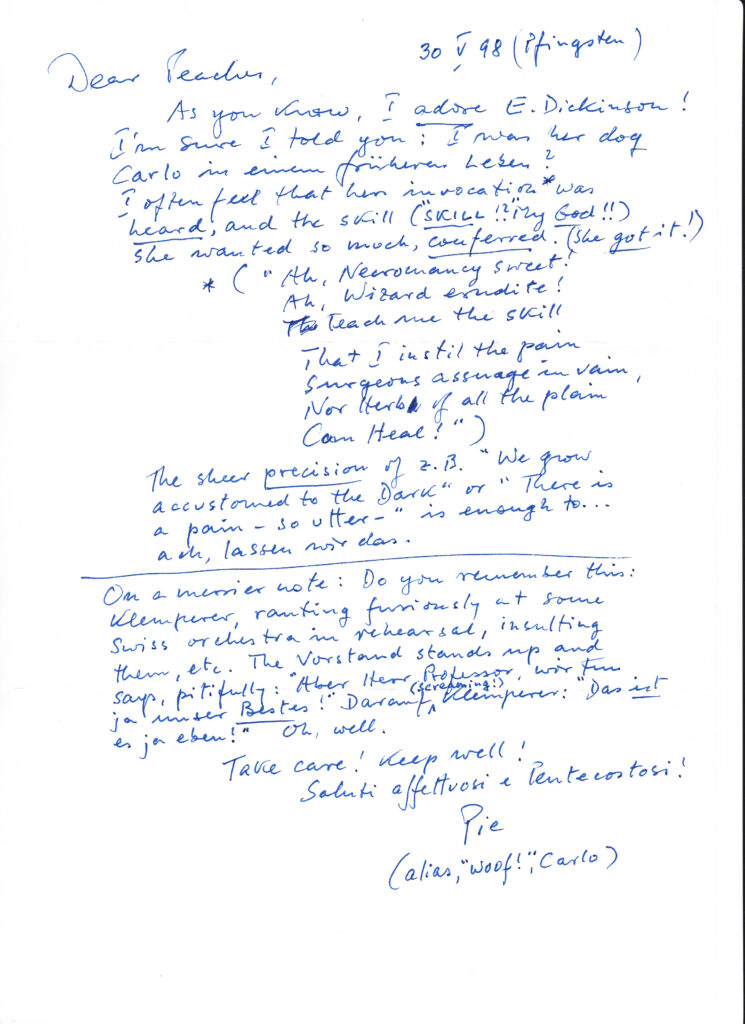 30 V 98 (Pfingsten)
Dear Teacher,
As you know, I adore E. Dickinson!
I'm sure I told you: I was her dog
Carlo in einem früheren Leben?
I often feel that her invocation* was
heard, and the skill ("SKILL!?" My God!!)
she wanted so much, conferred. (She got it!)
* ("Ah, Necromancy sweet!
Ah, Wizard erudite!
Teach me the skill
That I instil the pain
Surgeons assuage in vain,
Nor Herb of all the plain
Can Heal!")
The sheer precision of z.B. "We grow
accustomed to the Dark" or "There is
a pain – so utter –" is enough to...
ach, lassen wir das.
On a merrier note: Do you remember this:
Klemperer, ranting furiously at some
Swiss orchestra in rehearsal, insulting
them, etc. The Vorstand stands up and
says, pitifully: "Aber Herr Professor, wir tun
ja unser Bestes!" Darauf (screaming!) Klemperer: "Das ist
es ja eben!" Oh, well.
Take care! Keep well!
Saluti affettuosi e Pentecostosi!
Pie
(alias, "woof!", Carlo)